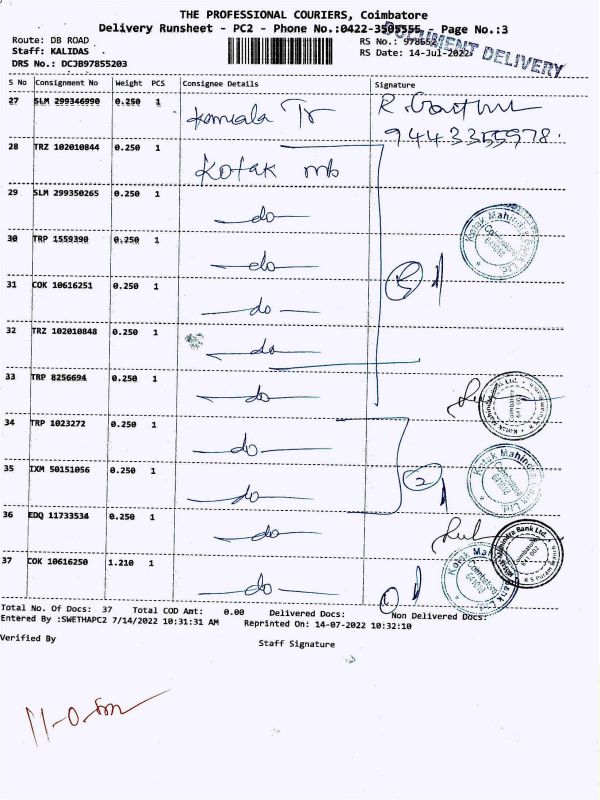 THE PROFESSIONAL COURIERS, Coimbatore
Delivery Runsheet - PC2 - Phone No.:0422-3505555 - Page No.:3
DOCUMENT DELIVERY
Route: DB ROAD
RS No.: 97855
Staff: KALIDAS
RS Date: 14-Jul-2022
DRS No.: DCJB97855203
S No Consignment No Weight PCS Consignee Details Signature
27 SLM 299346990 0.250 1
9443355978.
28 TRZ 102010844 0.250 1 Kotak mb
29 SLM 299350265 0.250 1 do
30 TRP 1559390 0.250 1 do
31 COK 10616251 0.250 1 do
32 TRZ 102010848 0.250 1 do
33 TRP 8256694 0.250 1 do
34 TRP 1023272 0.250 1 do
35 IXM 50151056 0.250 1 do 2
36 EDQ 11733534 0.250 1 do
37 COK 10616250 1.210 1 do
Total No. Of Docs: 37 Total COD Amt: 0.00 Delivered Docs: Non Delivered Docs:
Entered By :SWETHAPC2 7/14/2022 10:31:31 AM Reprinted On: 14-07-2022 10:32:10
Verified By
Staff Signature